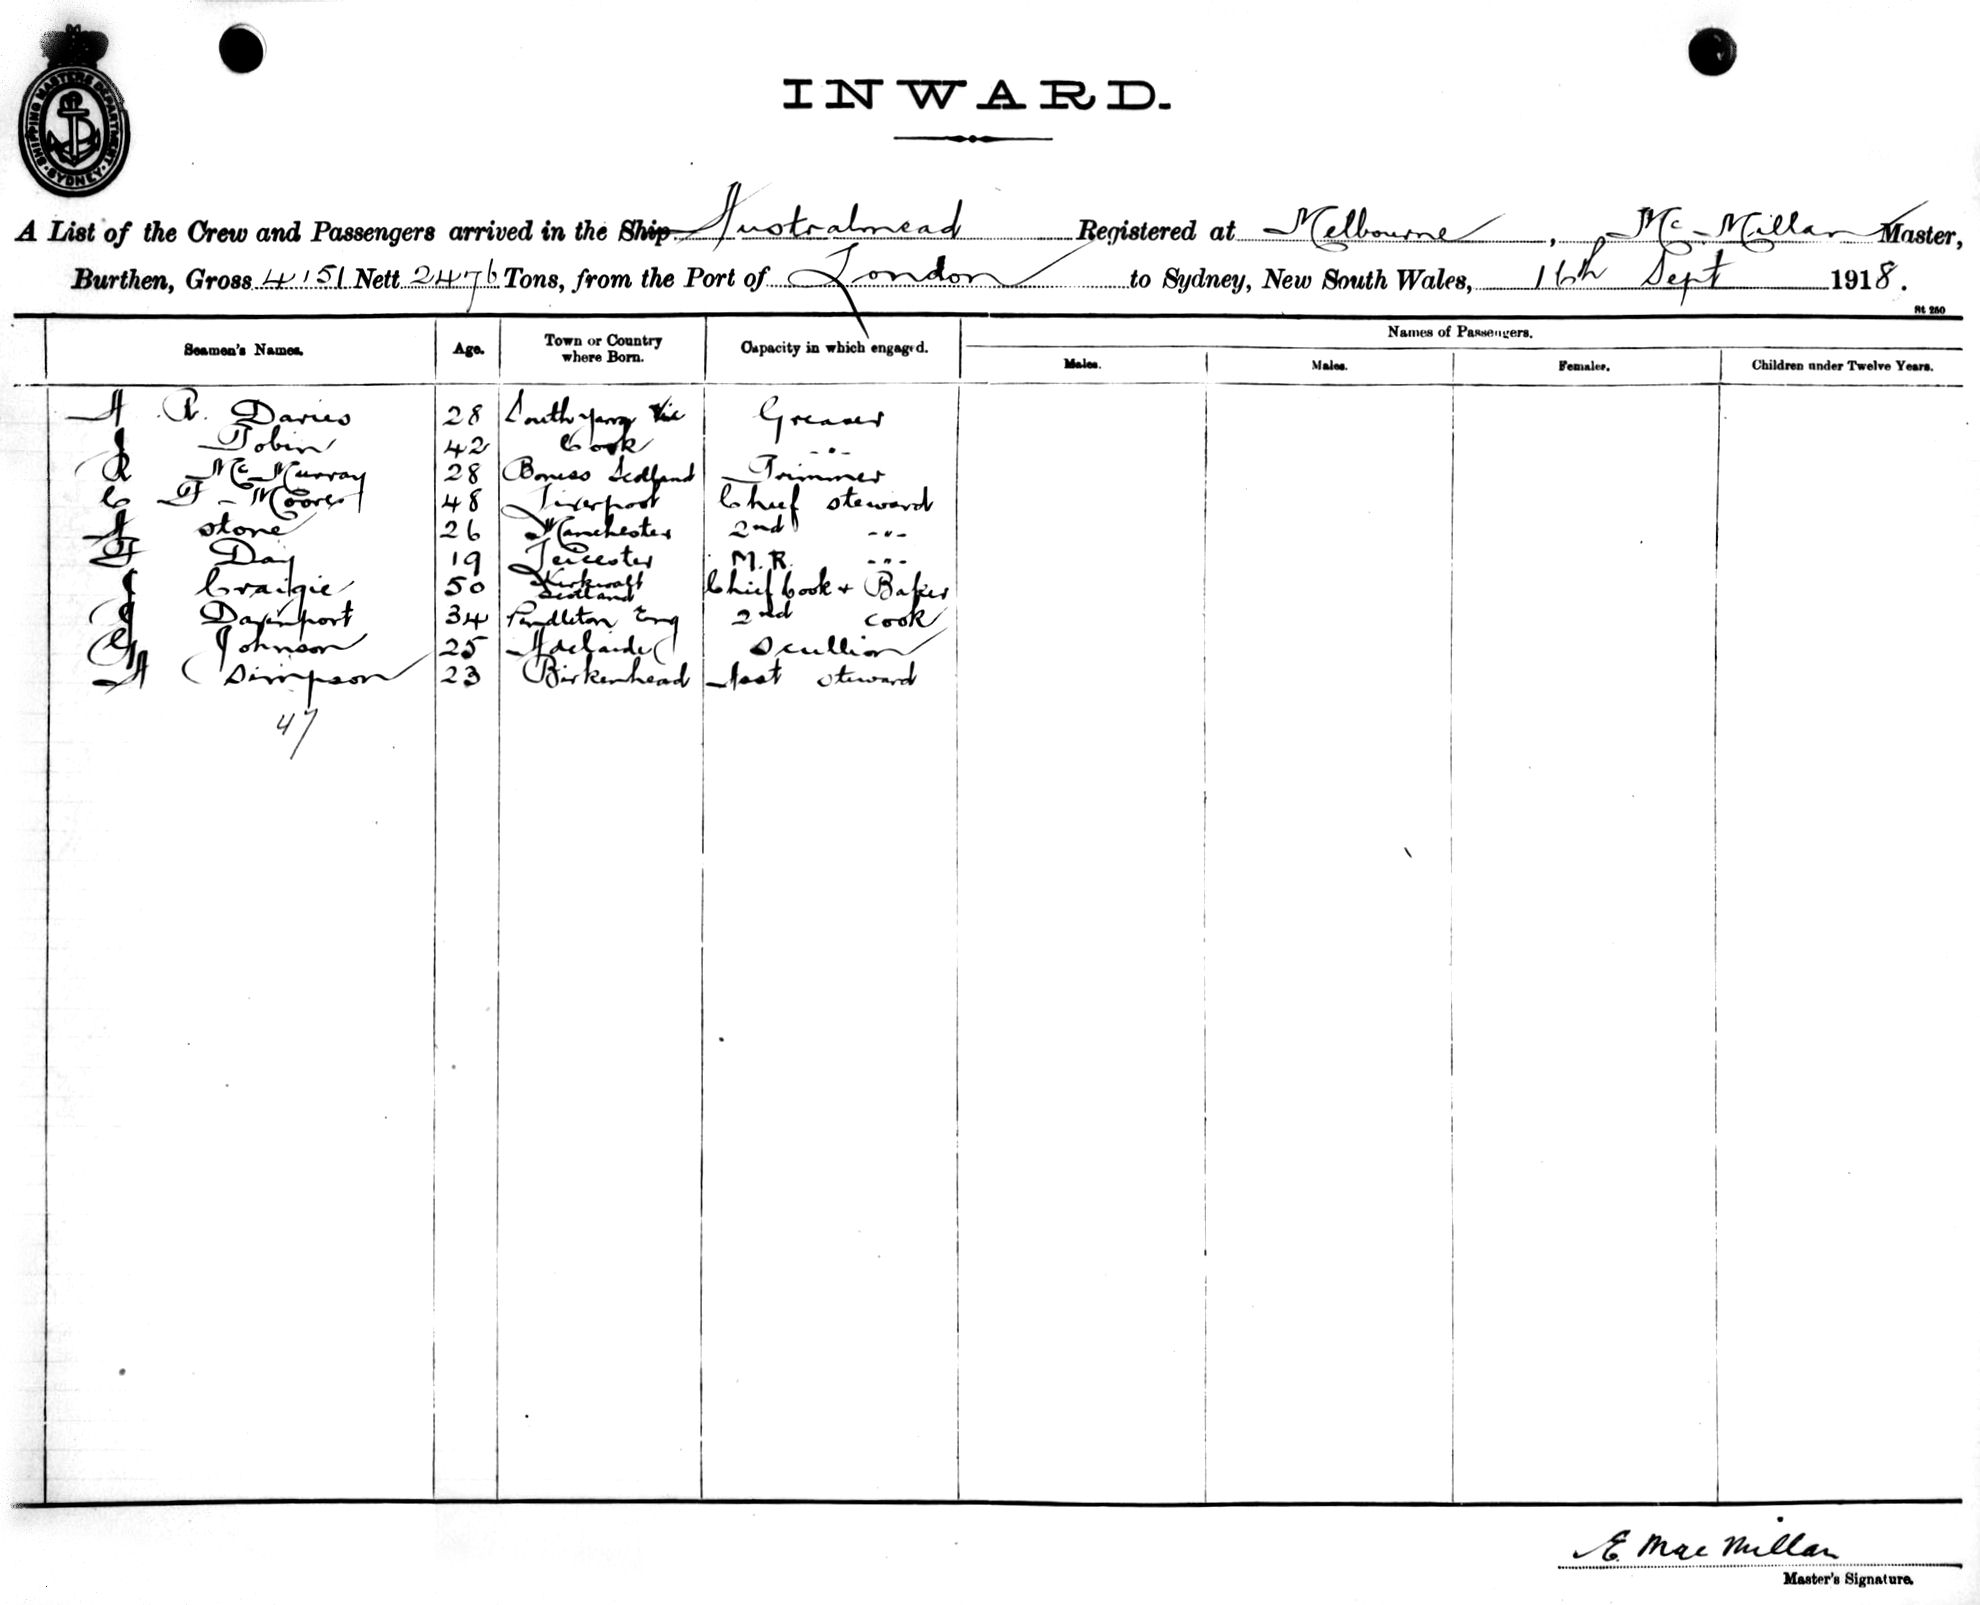 SHIPPING MASTERS DEPARTMENT
SYDNEY
INWARD.
A List of the Crew and Passengers arrived in the Ship Australmead Registered at Melbourne, Mc Millan Master,
Burthen, Gross 4151 Nett 2476 Tons, from the Port of London to Sydney, New South Wales, 16th Sept 1918.
St 250
Seamen's Names. Age. Town or Country where Born. Capacity in which engaged. Names of Passengers.
Males. Males. Females. Children under Twelve Years.
A R. Davies 28 South Yarra Vic Greaser
J Tobin 42 Cork -"-
R McMurray 28 Boness Scotland Trimmer
C F Moores 48 Liverpool Chief steward
A Stone 26 Manchester 2nd -"-
F Day 19 Leicester M.R. -"-
J Craigie 50 Kirkwall Scotland Chief Cook + Baker
J Davenport 34 Pendleton Eng 2nd cook
G Johnson 25 Adelaide Scullion
A Simpson 23 Birkenhead Asst steward
47
E. MacMillan
Master's Signature.